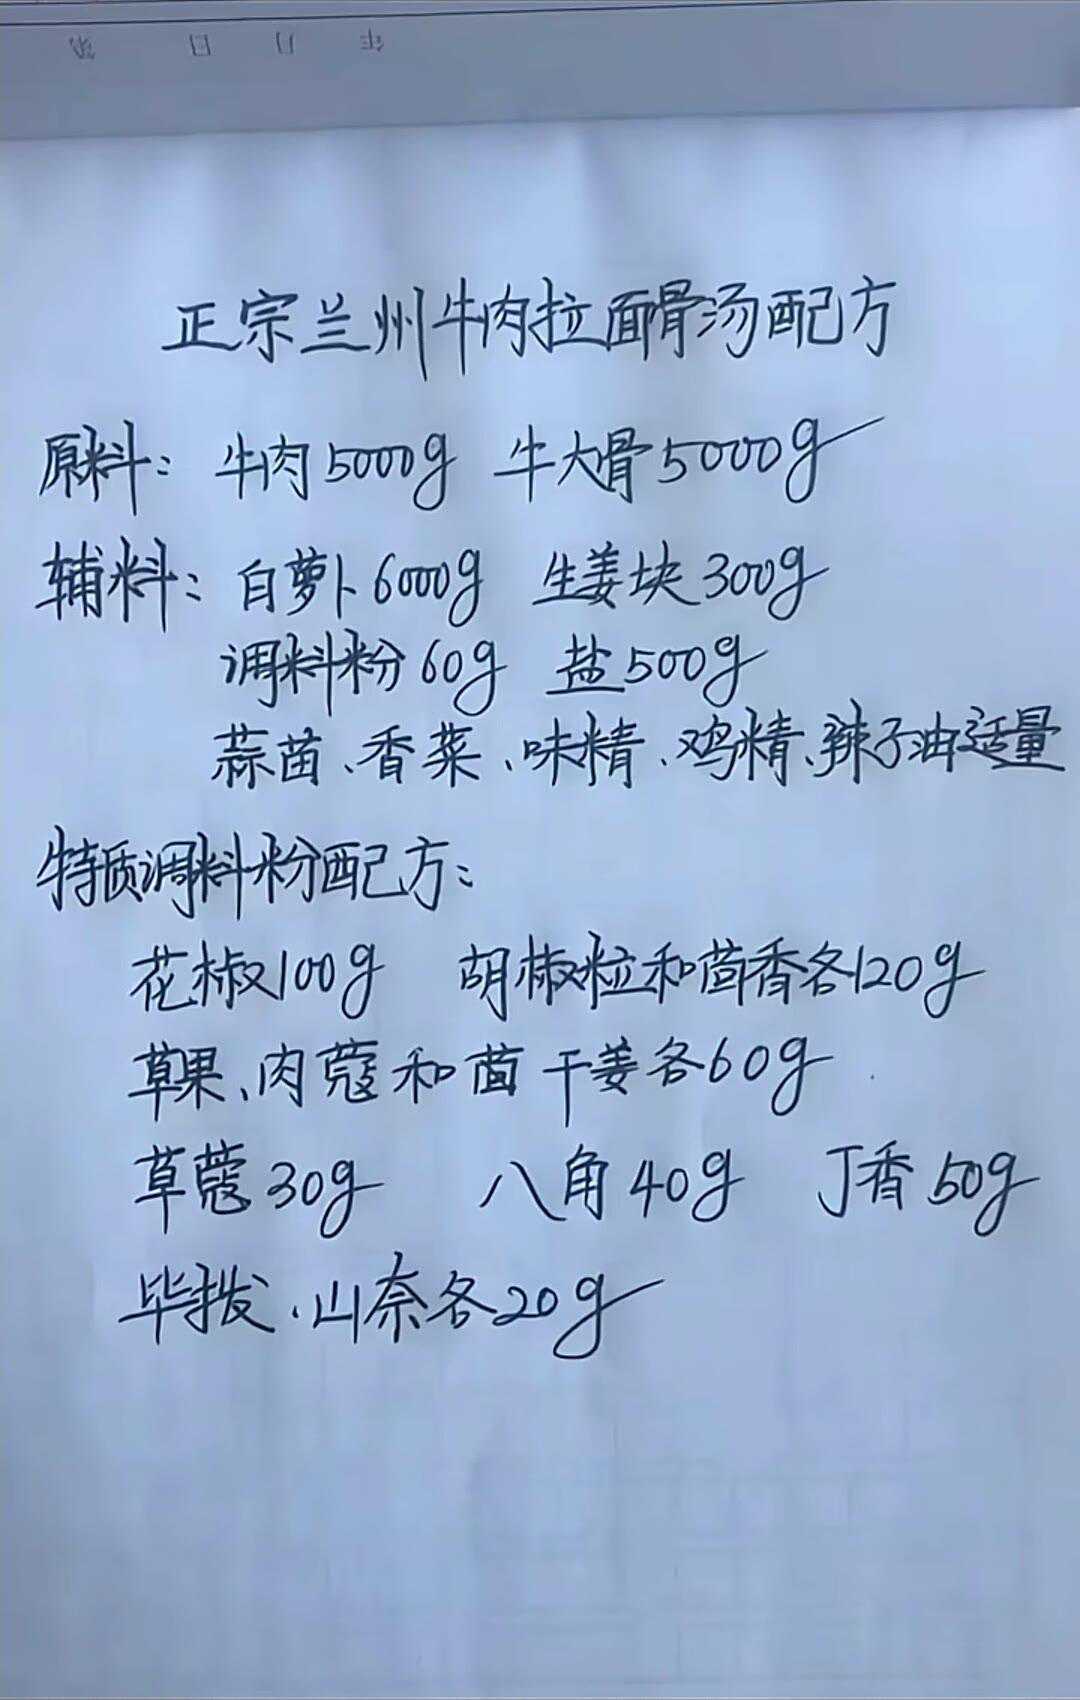 年 月 日 第
正宗兰州牛肉拉面骨汤配方
原料：牛肉5000g 牛大骨5000g
辅料：白萝卜6000g 生姜块300g
调料粉60g 盐500g
蒜苗、香菜、味精、鸡精、辣子油适量
特质调料粉配方：
花椒100g 胡椒粒和茴香各120g
草果、肉蔻和茴 干姜各60g
草蔻30g 八角40g 丁香50g
毕拨、山奈各20g